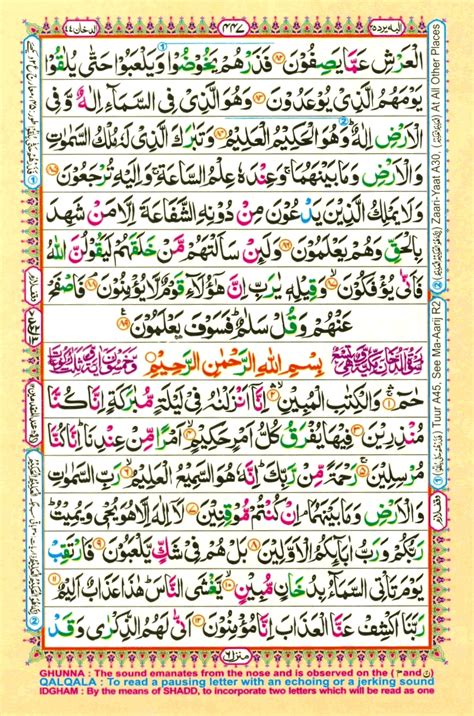 الدخان ٤٤
٤٤٧
الیه یرد ٢٥
الْعَرْشِ عَمَّا یَصِفُوْنَ ﴿۸۲﴾ فَذَرْهُمْ یَخُوْضُوْا وَیَلْعَبُوْا حَتّٰی یُلٰقُوْا
یَوْمَهُمُ الَّذِیْ یُوْعَدُوْنَ ﴿۸۳﴾ وَهُوَ الَّذِیْ فِی السَّمَآءِ اِلٰهٌ وَّفِی
الْاَرْضِ اِلٰهٌ ؕ وَهُوَ الْحَكِیْمُ الْعَلِیْمُ ﴿۸۴﴾ وَتَبٰرَكَ الَّذِیْ لَهٗ مُلْكُ السَّمٰوٰتِ
وَالْاَرْضِ وَمَا بَیْنَهُمَا ۚ وَعِنْدَهٗ عِلْمُ السَّاعَةِ ۚ وَاِلَیْهِ تُرْجَعُوْنَ ﴿۸۵﴾
وَلَا یَمْلِكُ الَّذِیْنَ یَدْعُوْنَ مِنْ دُوْنِهِ الشَّفَاعَةَ اِلَّا مَنْ شَهِدَ
بِالْحَقِّ وَهُمْ یَعْلَمُوْنَ ﴿۸۶﴾ وَلَىِٕنْ سَاَلْتَهُمْ مَّنْ خَلَقَهُمْ لَیَقُوْلُنَّ اللّٰهُ
فَاَنّٰی یُؤْفَكُوْنَ ﴿۸۷﴾ وَقِیْلِهٖ یٰرَبِّ اِنَّ هٰۤؤُلَآءِ قَوْمٌ لَّا یُؤْمِنُوْنَ ﴿۸۸﴾ فَاصْفَحْ
عَنْهُمْ وَقُلْ سَلٰمٌ ؕ فَسَوْفَ یَعْلَمُوْنَ ﴿۸۹﴾
بِسْمِ اللّٰهِ الرَّحْمٰنِ الرَّحِیْمِ
حٰمٓ ﴿۱﴾ وَالْكِتٰبِ الْمُبِیْنِ ﴿۲﴾ اِنَّاۤ اَنْزَلْنٰهُ فِیْ لَیْلَةٍ مُّبٰرَكَةٍ اِنَّا كُنَّا
مُنْذِرِیْنَ ﴿۳﴾ فِیْهَا یُفْرَقُ كُلُّ اَمْرٍ حَكِیْمٍ ﴿۴﴾ اَمْرًا مِّنْ عِنْدِنَا ؕ اِنَّا كُنَّا
مُرْسِلِیْنَ ﴿۵﴾ رَحْمَةً مِّنْ رَّبِّكَ ؕ اِنَّهٗ هُوَ السَّمِیْعُ الْعَلِیْمُ ﴿۶﴾ رَبِّ السَّمٰوٰتِ
وَالْاَرْضِ وَمَا بَیْنَهُمَا ۘ اِنْ كُنْتُمْ مُّوْقِنِیْنَ ﴿۷﴾ لَاۤ اِلٰهَ اِلَّا هُوَ یُحْیٖ وَیُمِیْتُ ؕ
رَبُّكُمْ وَرَبُّ اٰبَآىِٕكُمُ الْاَوَّلِیْنَ ﴿۸﴾ بَلْ هُمْ فِیْ شَكٍّ یَّلْعَبُوْنَ ﴿۹﴾ فَارْتَقِبْ
یَوْمَ تَاْتِی السَّمَآءُ بِدُخَانٍ مُّبِیْنٍ ﴿۱۰﴾ یَّغْشَی النَّاسَ ؕ هٰذَا عَذَابٌ اَلِیْمٌ ﴿۱۱﴾
رَبَّنَا اكْشِفْ عَنَّا الْعَذَابَ اِنَّا مُؤْمِنُوْنَ ﴿۱۲﴾ اَنّٰی لَهُمُ الذِّكْرٰی وَقَدْ
منزل ٦
Zaari-Yaat A30, At All Other Places
Tuur A45, See Ma-Aarij R2
GHUNNA : The sound emanates from the nose and is observed on the (ن and م)
QALQALA : To read a pausing letter with an echoing or a jerking sound
IDGHAM : By the means of SHADD, to incorporate two letters which will be read as one